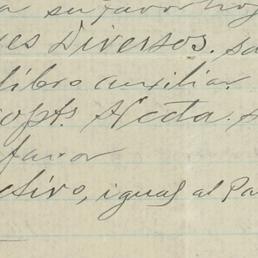 su favor hoy
es Diversos. sa
libro auxiliar.
opts. Neeta.
favor
ctivo, igual al Pa